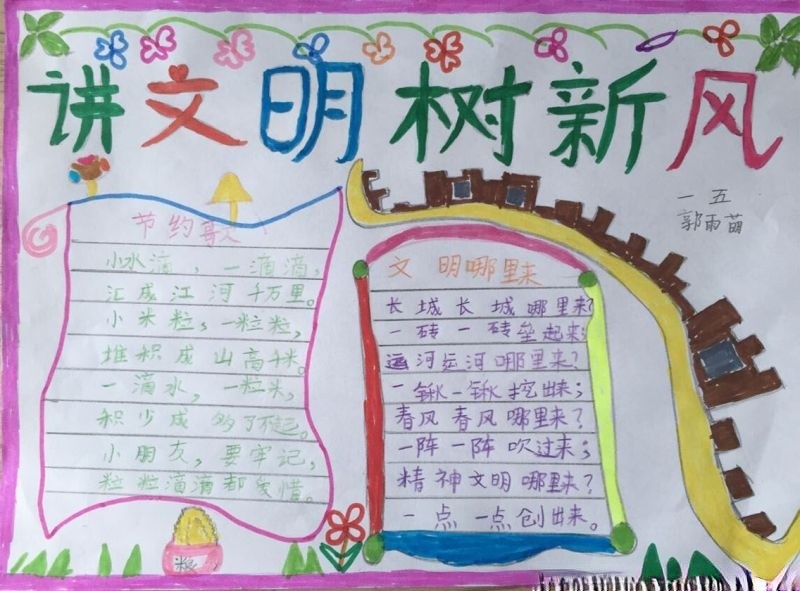 讲文明树新风
一 五
郭雨萌
节约歌
小水滴，一滴滴，
汇成江河千万里。
小米粒，一粒粒，
堆积成山高千米。
一滴水，一粒米，
积少成多了不起。
小朋友，要牢记，
粒粒滴滴都爱惜。
米
文明哪里来
长城长城哪里来？
一砖一砖垒起来；
运河运河哪里来？
一锹一锹挖出来；
春风春风哪里来？
一阵一阵吹过来；
精神文明哪里来？
一点一点创出来。